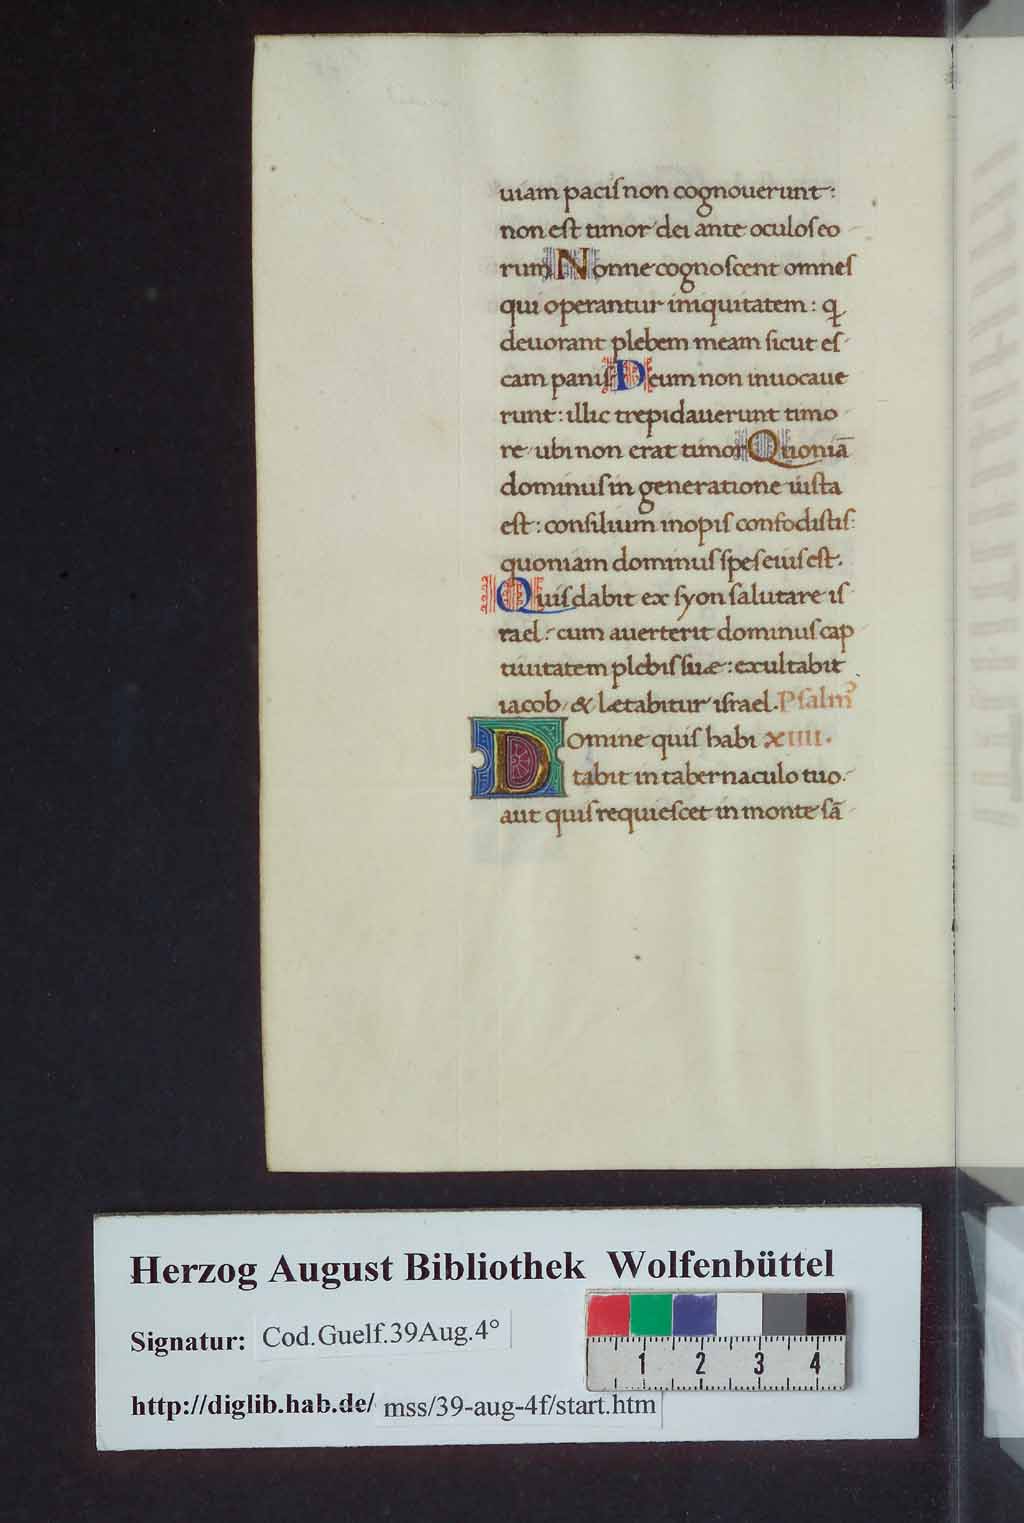 uiam pacis non cognouerunt:
non est timor dei ante oculos eo
rum Nonne cognoscent omnes
qui operantur iniquitatem: q
deuorant plebem meam sicut es
cam panis Deum non inuocaue
runt: illic trepidauerunt timo
re ubi non erat timor Quoniā
dominus in generatione iusta
est: consilium inopis confodistis:
quoniam dominus spes eius est.
Quis dabit ex syon salutare is
rael: cum auerterit dominus cap
tiuitatem plebis suæ: exultabit
iacob & lætabitur israel. Psalmꝰ
Domine quis habi XIIII.
tabit in tabernaculo tuo.
aut quis requiescet in monte sā
Herzog August Bibliothek Wolfenbüttel
Signatur: Cod.Guelf.39Aug.4°
1 2 3 4
http://diglib.hab.de/ mss/39-aug-4f/start.htm